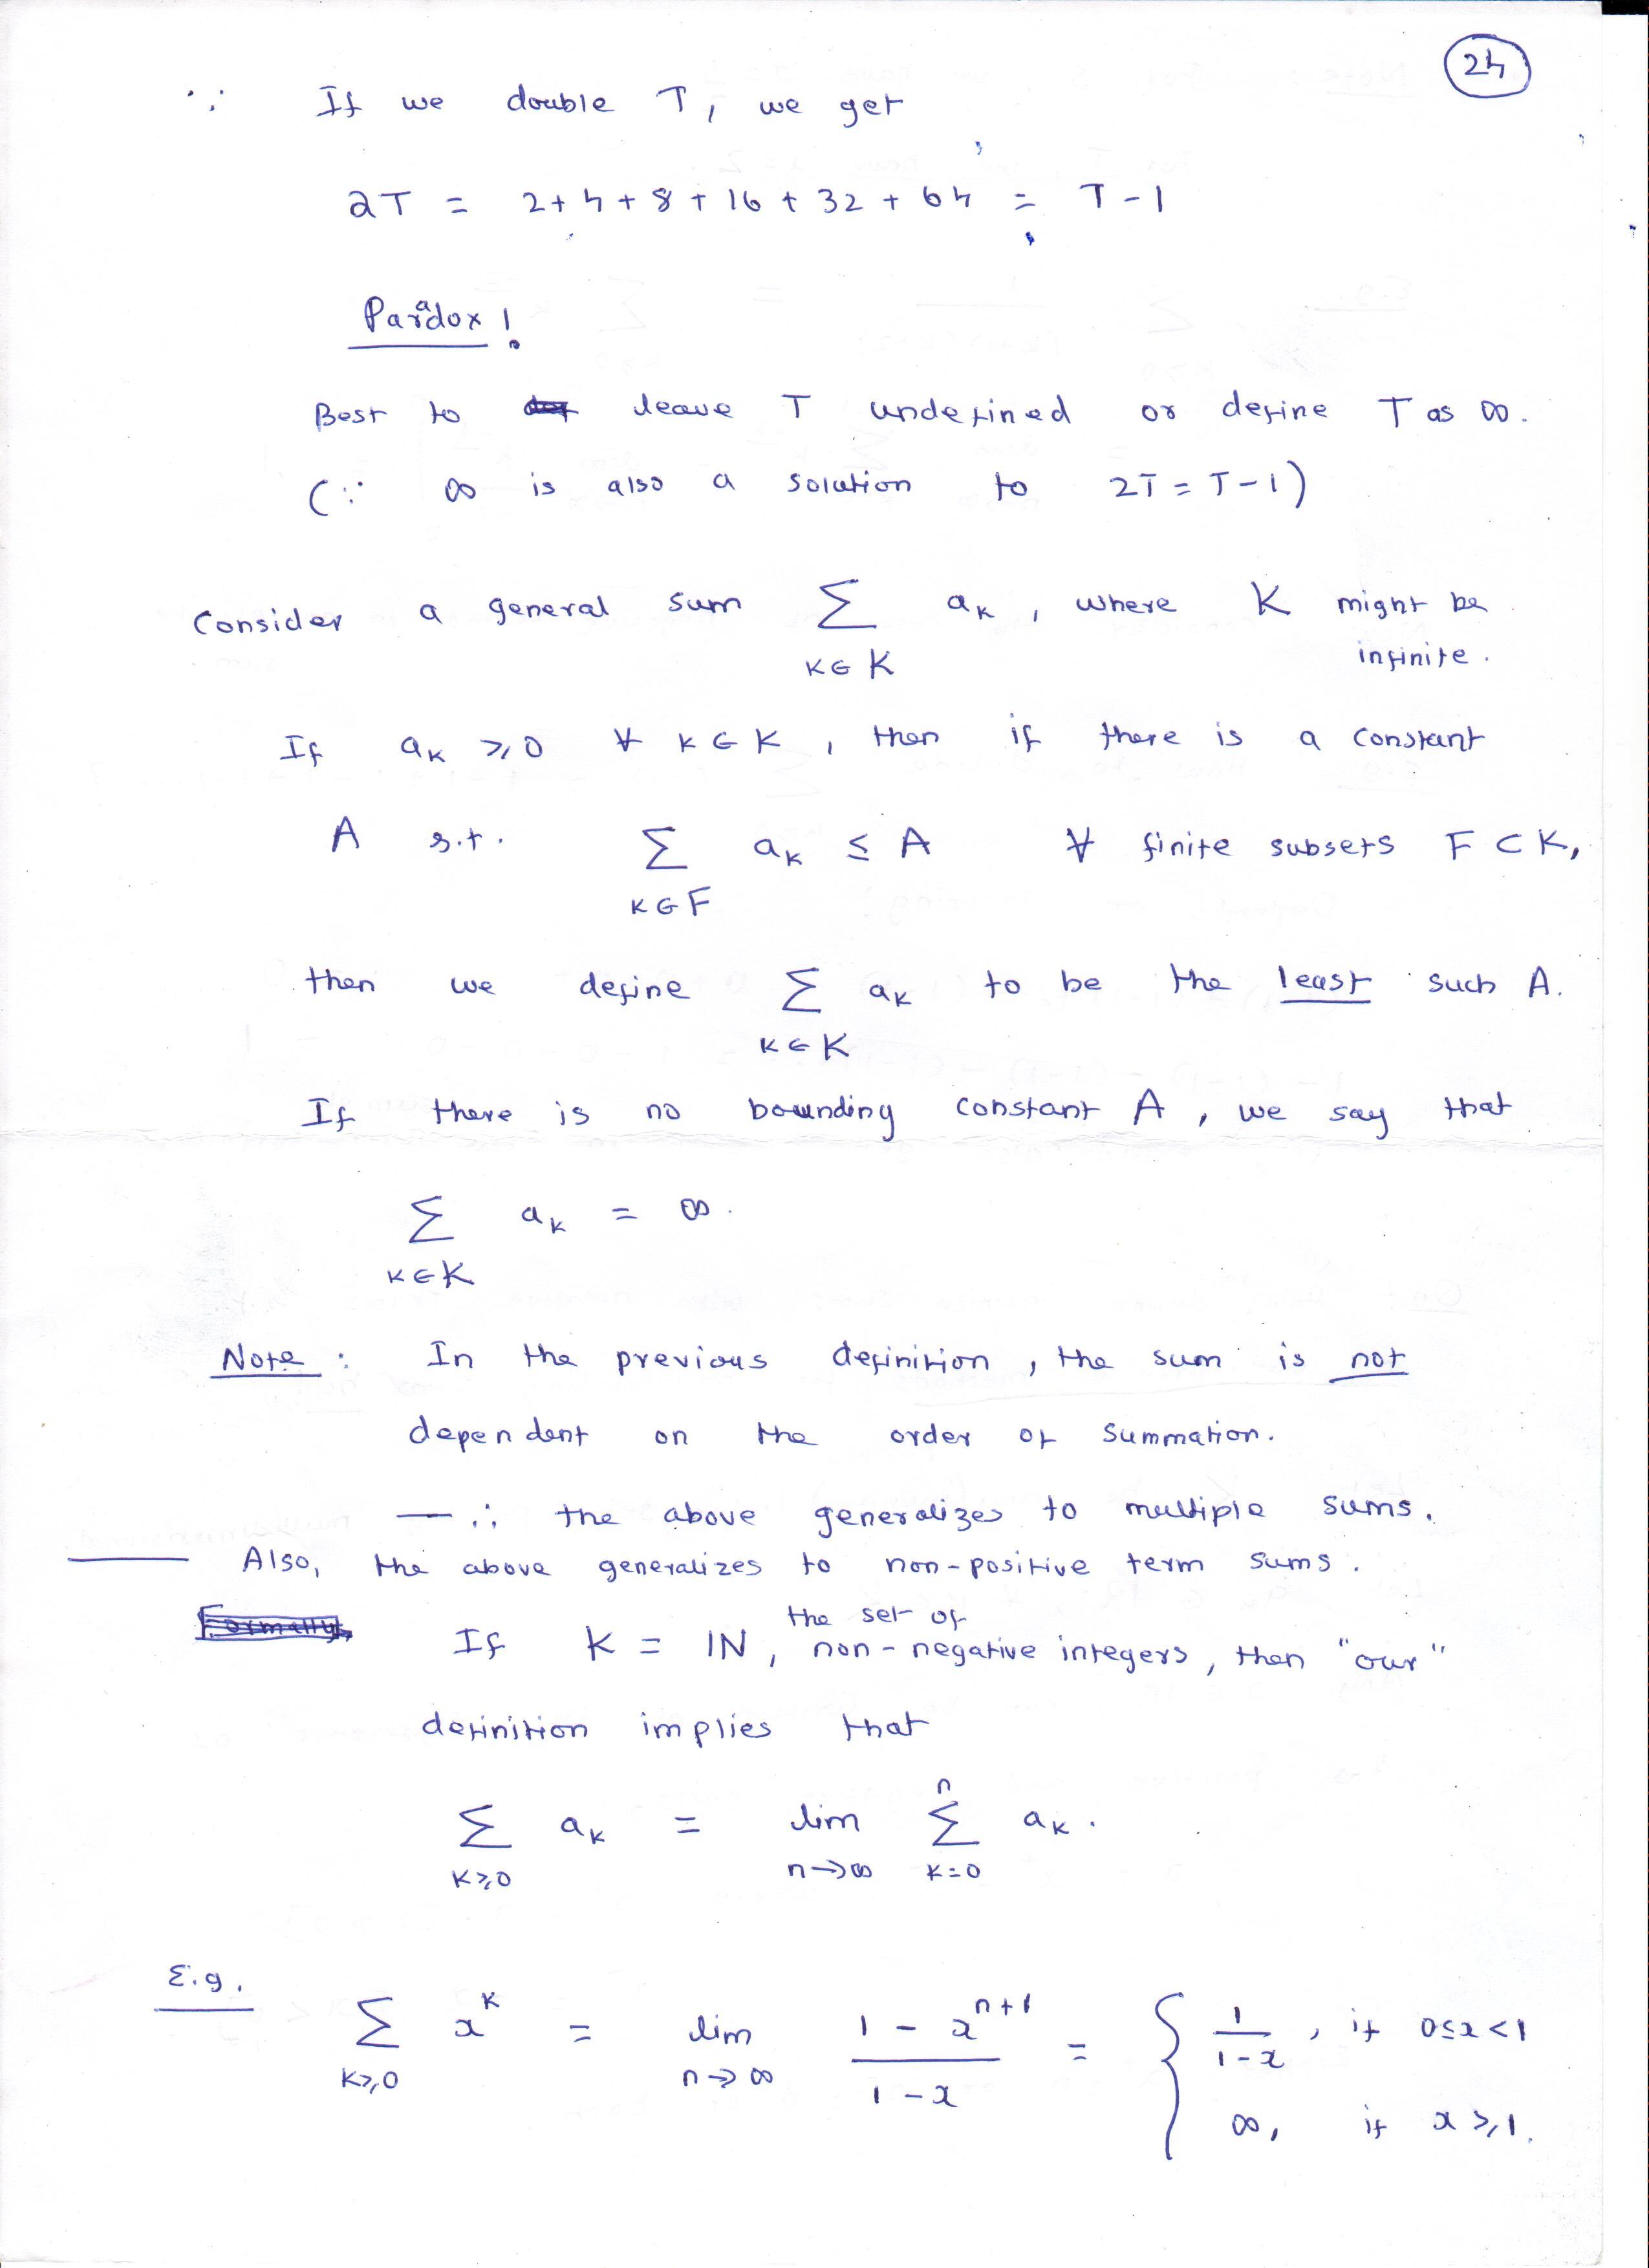 24
∵ If we double T, we get
2T = 2+4+8+16+32+64 = T-1
Paradox!
Best to leave T undefined or define T as ∞.
(∵ ∞ is also a solution to 2T = T-1)
Consider a general sum Σ a_k, where K might be
k∈K infinite.
If a_k ≥ 0 ∀ k∈K, then if there is a constant
A s.t. Σ a_k ≤ A ∀ finite subsets F ⊂ K,
k∈F
then we define Σ a_k to be the least such A.
k∈K
If there is no bounding constant A, we say that
Σ a_k = ∞.
k∈K
Note : In the previous definition, the sum is not
dependent on the order of summation.
— ∴ the above generalizes to multiple sums.
— Also, the above generalizes to non-positive term sums.
Formally,
the set of
If K = IN, non-negative integers, then "our"
definition implies that
n
Σ a_k = lim Σ a_k.
k≥0 n→∞ k=0
E.g.
Σ x^k = lim (1 - x^{n+1})/(1-x) = { 1/(1-x), if 0≤x<1
k≥0 n→∞
∞, if x≥1.